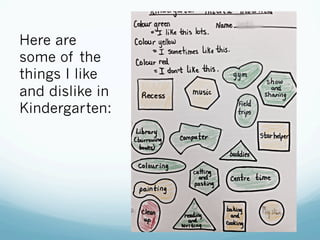 Here are
some of the
things I like
and dislike in
Kindergarten:
Colour green
= I like this lots.
Name
Colour yellow
= I sometimes like this.
Colour red
= I don't like this.
gym
show
and
sharing
Recess
music
field
trips
Library
(borrowing
books)
Computer
Star helper
buddies
Colouring
cutting
and
pasting
Centre time
painting
clean
up
reading
and
writing
baking
and
cooking